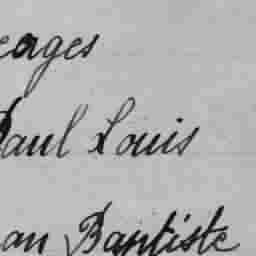 eorges
Paul Louis
an Baptiste